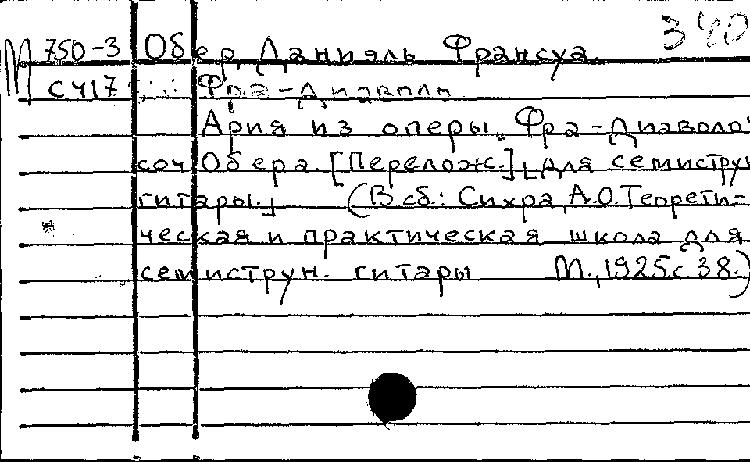 340
М 750-3 Обер, Даниэль Франсуа.
С417 Фра-Диаволо.
Ария из оперы „Фра-Диаволо"
соч Обера. [Перелож.] [для семистру
гитары.] (В сб.: Сихра, А.О. Теорети-
ческая и практическая школа для
семиструн. гитары М., 1925 с 38.)